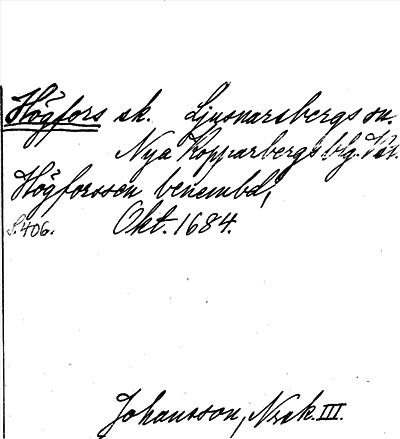 Högfors sk. Ljusnarsbergs sn.
Nya Kopparbergs blg. Vst.
Högforssen benembd,
S.406. Okt. 1684.
Johansson, Nzsk. III.